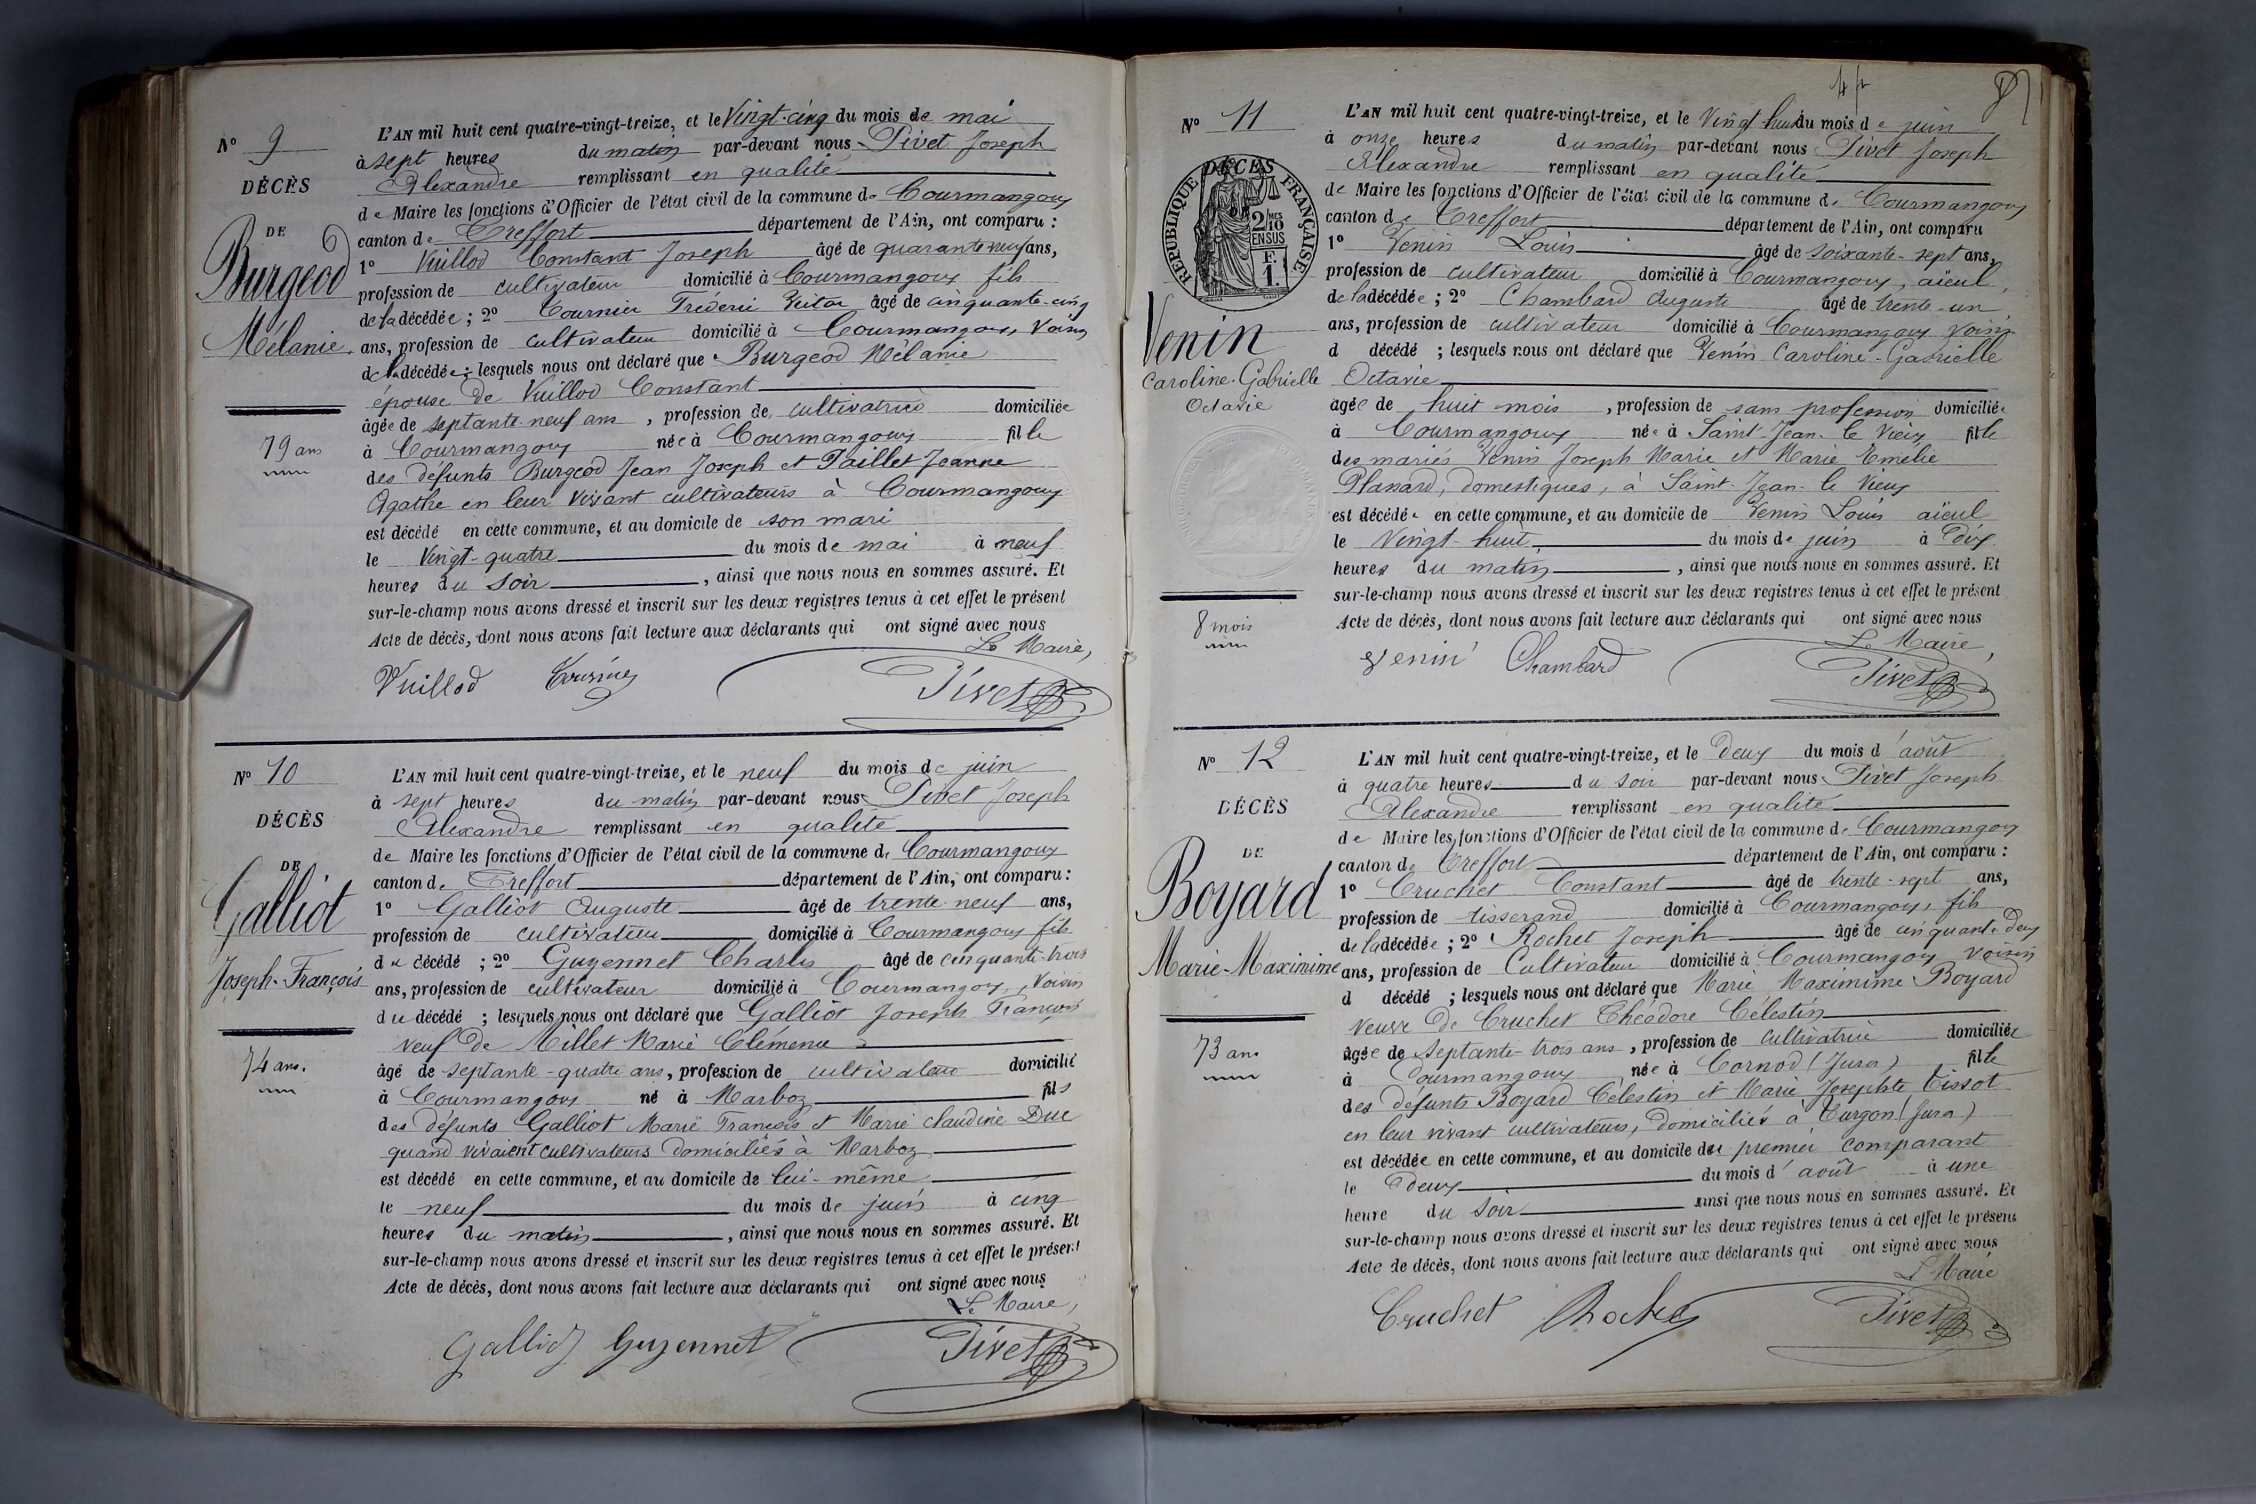 N° 9
DÉCÈS
DE
Burgeod
Mélanie
79 ans
L'AN mil huit cent quatre-vingt-treize, et le Vingt-cinq du mois de mai
à sept heures du matin par-devant nous Pivet Joseph
Alexandre remplissant en qualité
de Maire les fonctions d'Officier de l'état civil de la commune de Courmangoux
canton de Treffort département de l'Ain, ont comparu :
1° Vuillod Constant Joseph âgé de quarante neuf ans,
profession de cultivateur domicilié à Courmangoux fils
de la décédée ; 2° Tournier Frédéric Victor âgé de cinquante-cinq
ans, profession de cultivateur domicilié à Courmangoux, voisin
de la décédée ; lesquels nous ont déclaré que Burgeod Mélanie
épouse de Vuillod Constant
âgée de septante-neuf ans , profession de cultivatrice domiciliée
à Courmangoux née à Courmangoux fille
des défunts Burgeod Jean Joseph et Paillet Jeanne
Agathe en leur vivant cultivateurs à Courmangoux
est décédé en cette commune, et au domicile de son mari
le Vingt-quatre du mois de mai à neuf
heures du soir , ainsi que nous nous en sommes assuré. Et
sur-le-champ nous avons dressé et inscrit sur les deux registres tenus à cet effet le présent
Acte de décès, dont nous avons fait lecture aux déclarants qui ont signé avec nous
Le Maire,
Vuillod Pivet
N° 10
DÉCÈS
DE
Galliot
Joseph-François
74 ans.
L'AN mil huit cent quatre-vingt-treize, et le neuf du mois de juin
à sept heures du matin par-devant nous Pivet Joseph
Alexandre remplissant en qualité
de Maire les fonctions d'Officier de l'état civil de la commune de Courmangoux
canton de Treffort département de l'Ain, ont comparu :
1° Galliot Auguste âgé de trente-neuf ans,
profession de cultivateur domicilié à Courmangoux fils
du décédé ; 2° Guyennet Charles âgé de cinquante-trois
ans, profession de cultivateur domicilié à Courmangoux, voisin
du décédé ; lesquels nous ont déclaré que Galliot Joseph François
veuf de Millet Marie Clémence
âgé de septante-quatre ans, profession de cultivateur domicilié
à Courmangoux né à Marboz fils
des défunts Galliot Marie François et Marie Claudine Duc
quand vivaient cultivateurs domiciliés à Marboz
est décédé en cette commune, et au domicile de lui-même
le neuf du mois de juin à cinq
heures du matin , ainsi que nous nous en sommes assuré. Et
sur-le-champ nous avons dressé et inscrit sur les deux registres tenus à cet effet le présent
Acte de décès, dont nous avons fait lecture aux déclarants qui ont signé avec nous
Le Maire,
Galliot Guyennet Pivet
N° 11
DÉCÈS
RÉPUBLIQUE FRANÇAISE
2 MES 10 EN SUS
F. 1.
Venin
Caroline-Gabrielle
Octavie
8 mois
L'AN mil huit cent quatre-vingt-treize, et le Vingt huit du mois de juin
à onze heures du matin par-devant nous Pivet Joseph
Alexandre remplissant en qualité
de Maire les fonctions d'Officier de l'état civil de la commune de Courmangoux
canton de Treffort département de l'Ain, ont comparu
1° Venin Louis âgé de soixante-sept ans,
profession de cultivateur domicilié à Courmangoux, aïeul,
de la décédée ; 2° Chambard Auguste âgé de trente-un
ans, profession de cultivateur domicilié à Courmangoux voisin
d décédé ; lesquels nous ont déclaré que Venin Caroline-Gabrielle
Octavie
âgée de huit mois , profession de sans profession domiciliée
à Courmangoux née à Saint-Jean-le Vieux fille
des mariés Venin Joseph Marie et Marie Emélie
Planard, domestiques, à Saint-Jean-le Vieux
est décédée en cette commune, et au domicile de Venin Louis aïeul
le Vingt-huit du mois de juin à Dix
heures du matin , ainsi que nous nous en sommes assuré. Et
sur-le-champ nous avons dressé et inscrit sur les deux registres tenus à cet effet le présent
Acte de décès, dont nous avons fait lecture aux déclarants qui ont signé avec nous
Le Maire,
Venin Chambard Pivet
N° 12
DÉCÈS
DE
Boyard
Marie-Maximime
73 ans
L'AN mil huit cent quatre-vingt-treize, et le Deux du mois d'août
à quatre heures du soir par-devant nous Pivet Joseph
Alexandre remplissant en qualité
de Maire les fonctions d'Officier de l'état civil de la commune de Courmangoux
canton de Treffort département de l'Ain, ont comparu :
1° Cruchet Constant âgé de trente-sept ans,
profession de tisserand domicilié à Courmangoux, fils
de la décédée ; 2° Rochet Joseph âgé de cinquante-Deux
ans, profession de Cultivateur domicilié à Courmangoux voisin
d décédé ; lesquels nous ont déclaré que Marie Maximime Boyard
veuve de Cruchet Théodore Célestin
âgée de septante-trois ans , profession de cultivatrice domiciliée
à Courmangoux née à Cornod (Jura) fille
des défunts Boyard Célestin et Marie Josephte Tissot
en leur vivant cultivateurs, domiciliés à Turgon (Jura)
est décédée en cette commune, et au domicile du premier comparant
le Deux du mois d'août à une
heure du soir ainsi que nous nous en sommes assuré. Et
sur-le-champ nous avons dressé et inscrit sur les deux registres tenus à cet effet le présent
Acte de décès, dont nous avons fait lecture aux déclarants qui ont signé avec nous
Le Maire
Cruchet Rochet Pivet